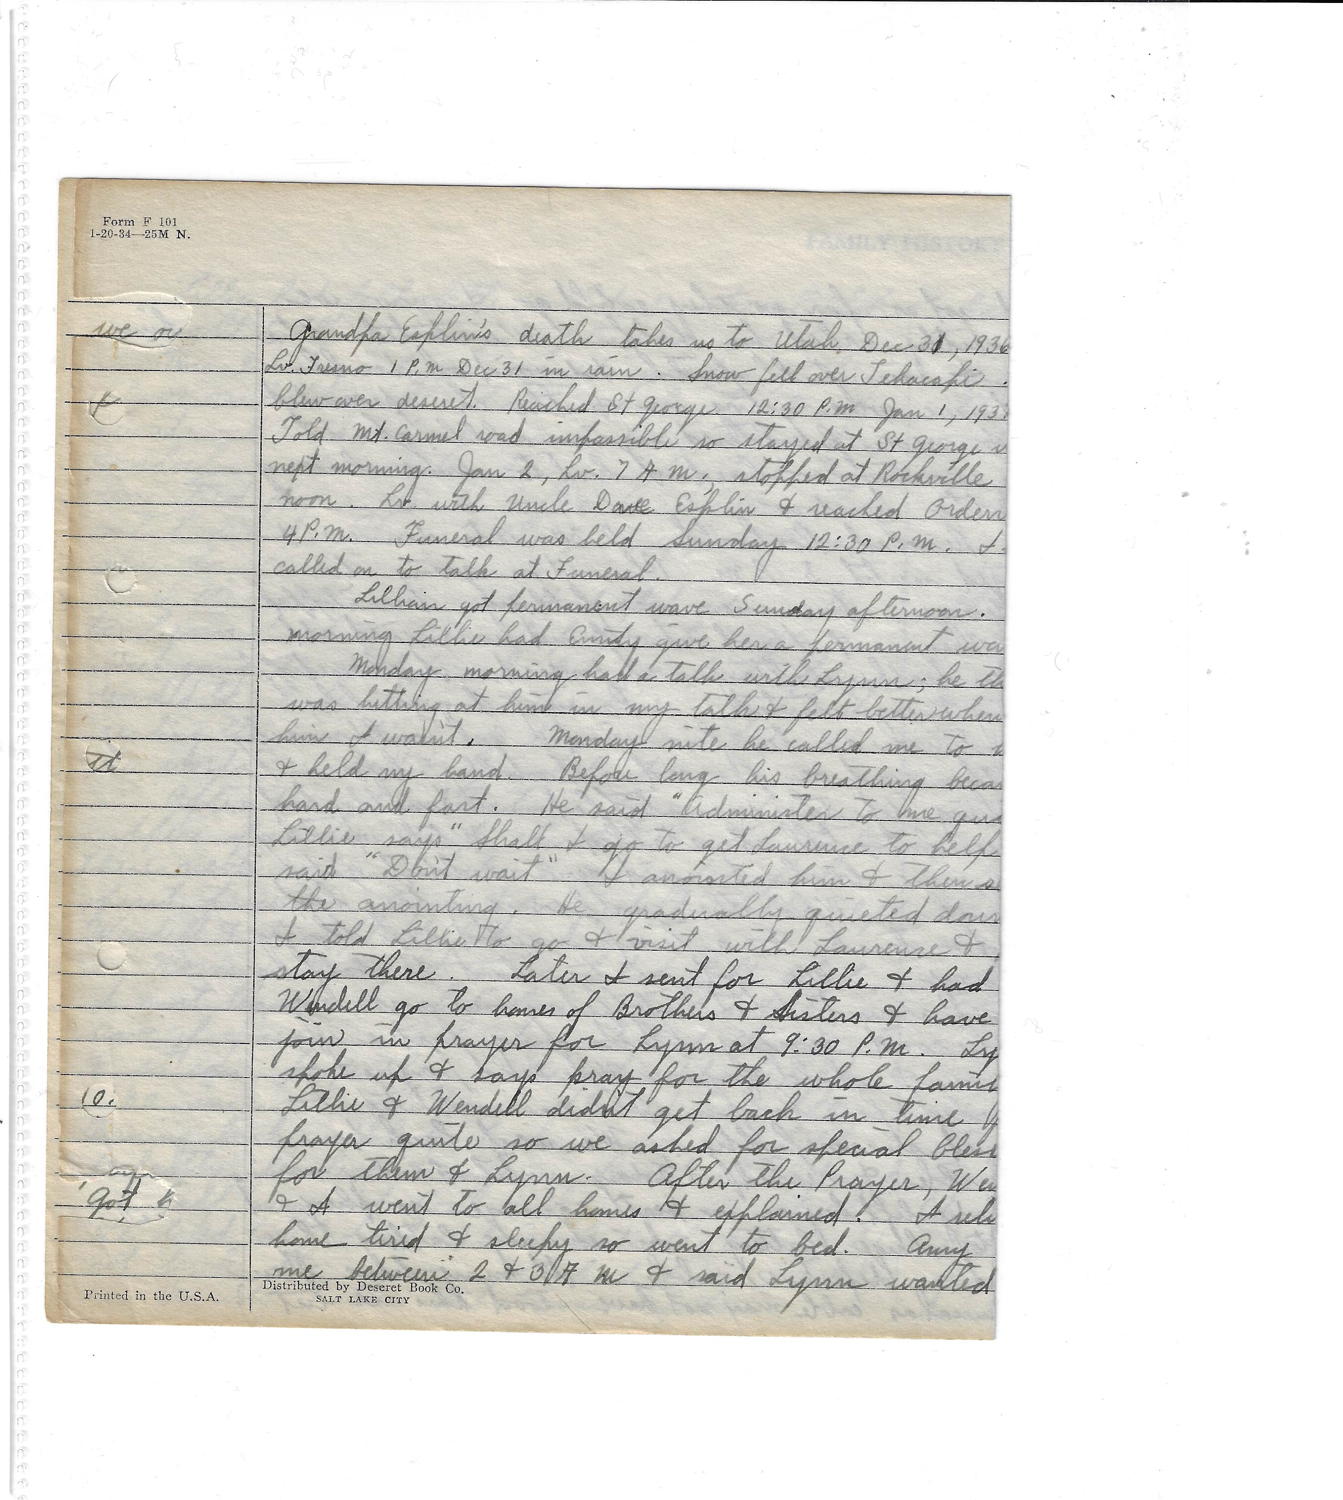 Form F 101
1-20-34—25M N.
FAMILY HISTORY
we or Grandpa Esplin's death takes us to Utah, Dec 31, 1936
Lv. Fresno 1 P.M Dec 31 in rain. Snow fell over Tehacapi.
& blew over deseret. Reached St George 12:30 P.M Jan 1, 193
Told Mt. Carmel road impassible so stayed at St George
next morning. Jan 2, Lv. 7 A M., stopped at Rockville
noon. Lv. with Uncle Dave Esplin & reached Orderv
4 P.M. Funeral was held Sunday 12:30 P.M. I
called on to talk at Funeral.
Lillian got permanent wave Sunday afternoon.
morning Lillie had give her a permanent wa
Monday morning had a talk with Lynn; he th
was hitting at him in my talk & felt better when
him I wasn't. Monday nite he called me to
it & held my hand. Before long his breathing beca
hard and fast. He said "Administer to me
Lillie says "Shall I go to get Laurence to help
said "Don't wait" I anointed him & then s
the anointing. He gradually quieted down
I told Lillie to go & visit with Laurence &
stay there. Later I sent for Lillie & had
Wendell go to homes of Brothers & Sisters & have
join in prayer for Lynn at 9:30 P.M. Ly
spoke up & says pray for the whole famil
10. Lillie & Wendell didn't get back in time
prayer quite so we asked for special bless
for them & Lynn. After the Prayer, Wen
got & I went to all homes & explained. I
home tired & sleepy so went to bed.
me between 2 & 3 A M & said Lynn wanted
Distributed by Deseret Book Co.
Printed in the U.S.A. SALT LAKE CITY